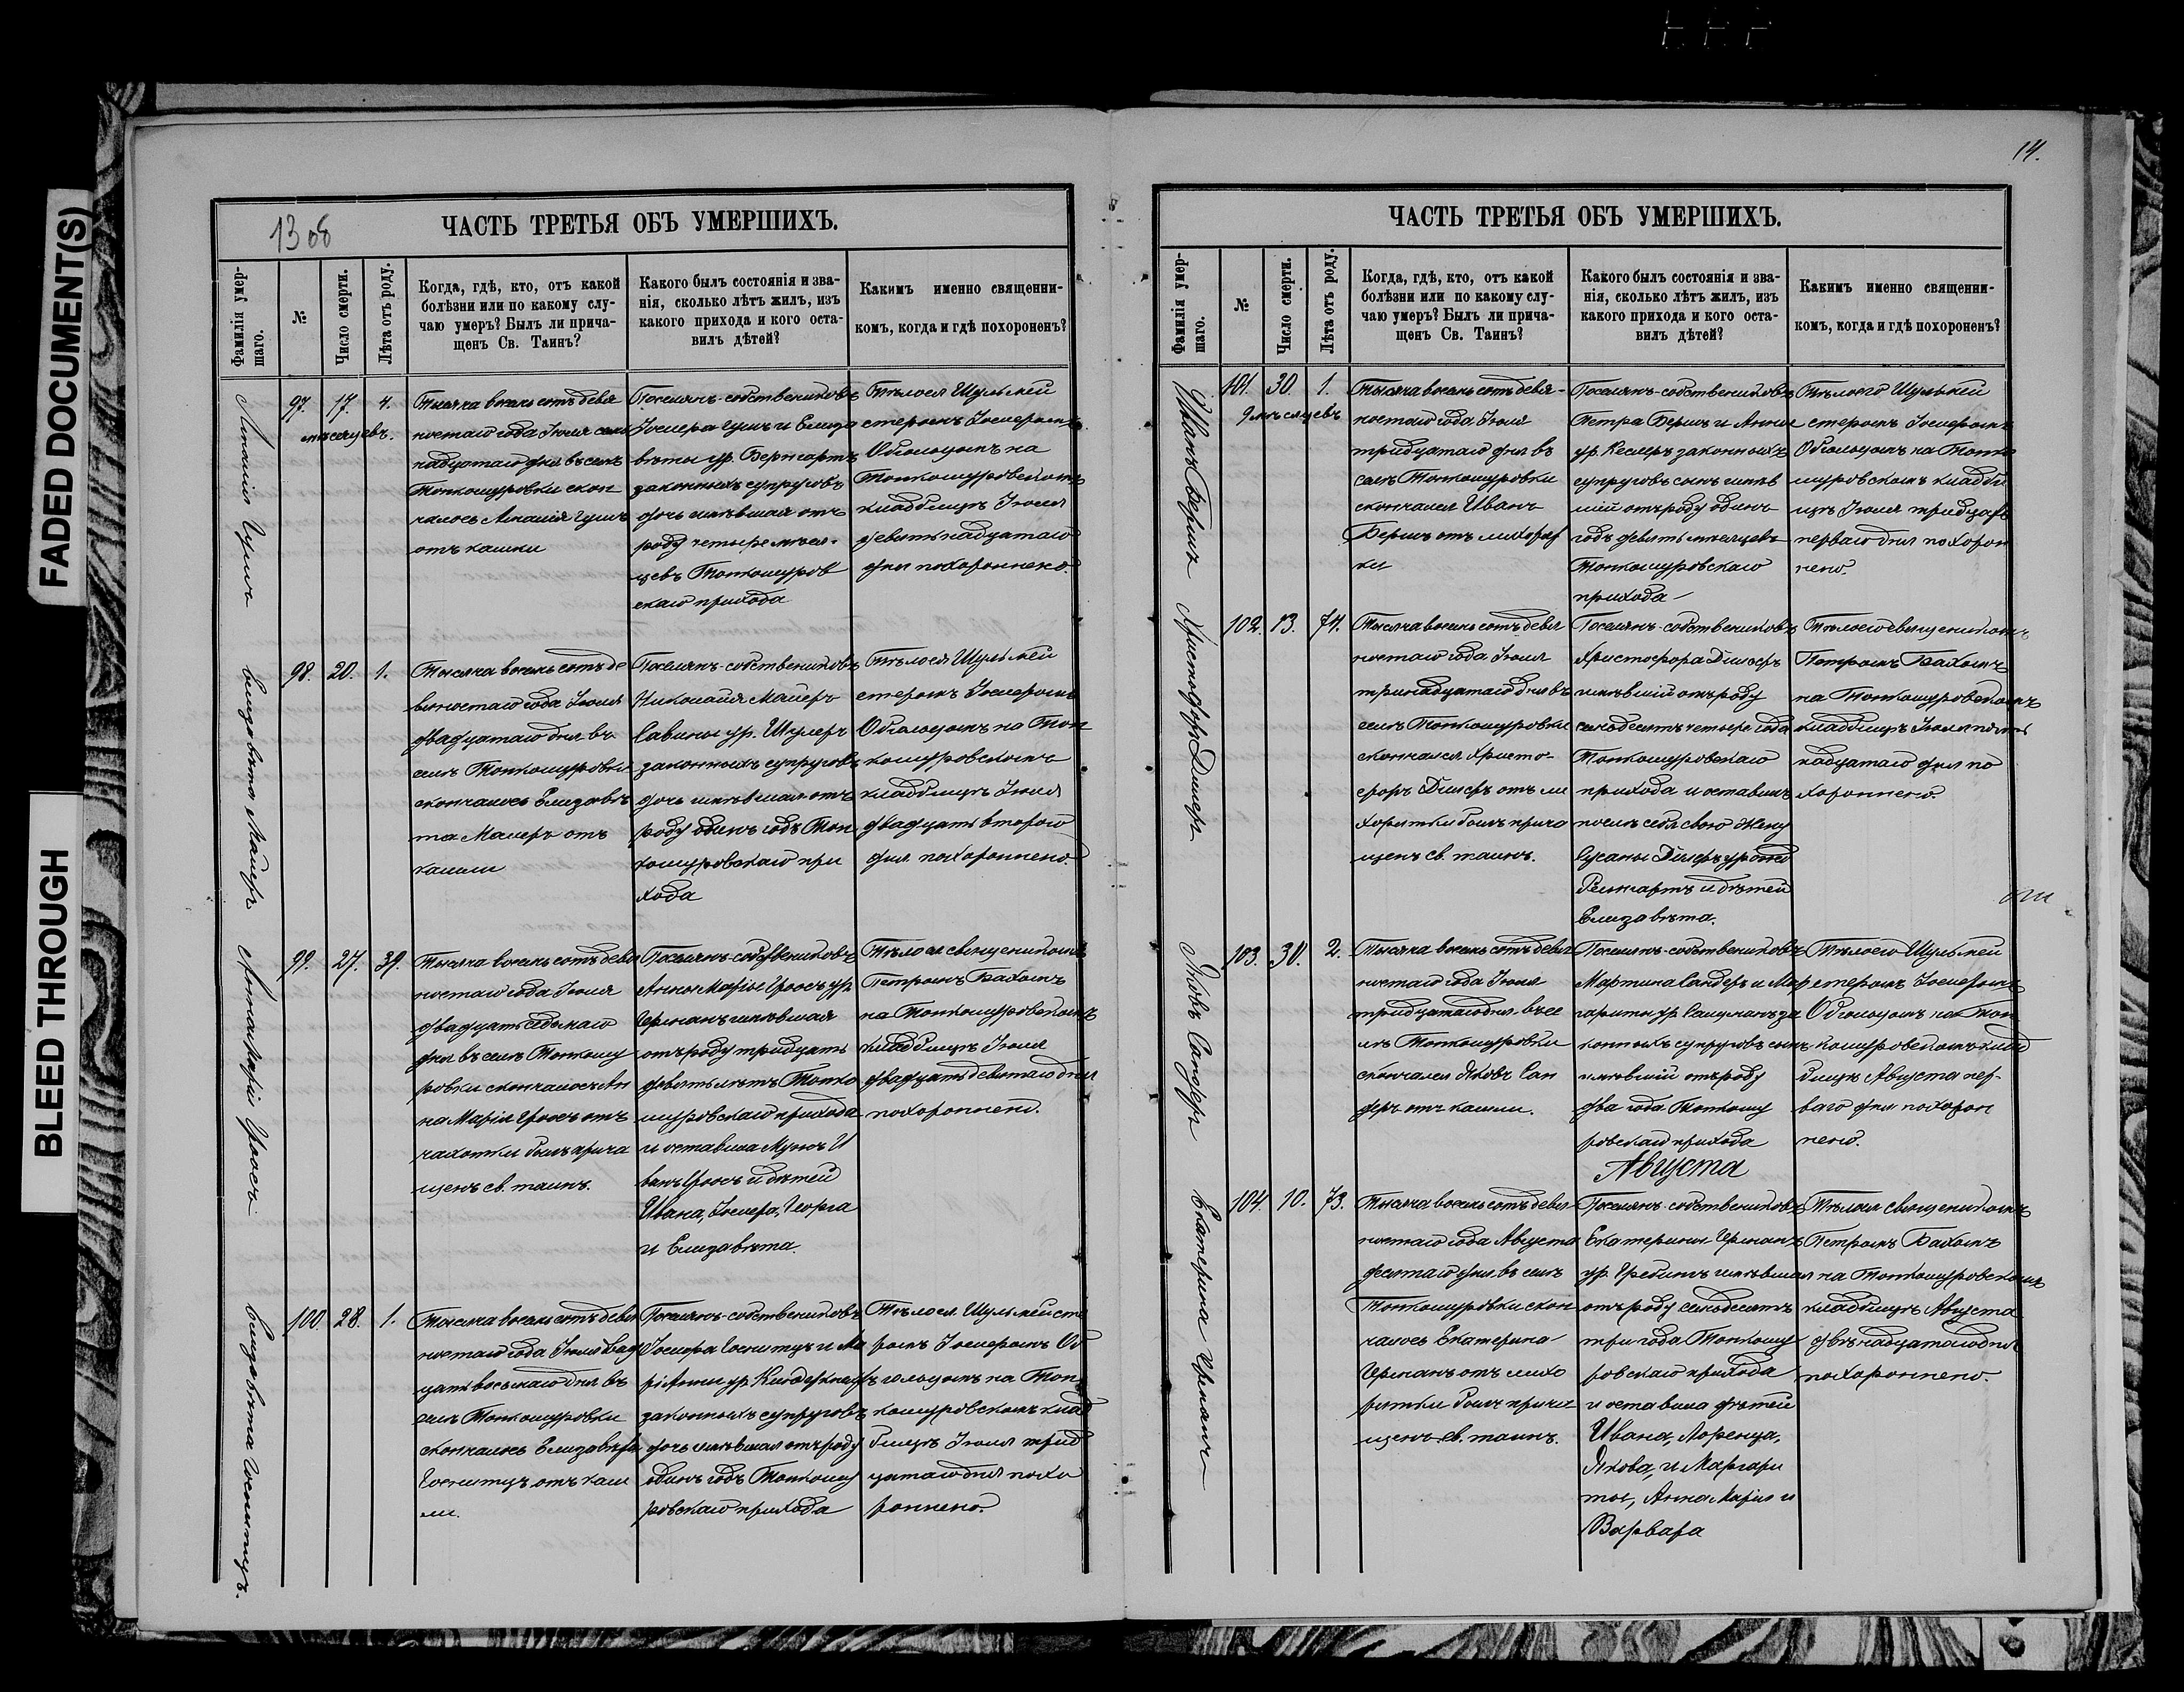 FADED DOCUMENT(S)
BLEED THROUGH
13 об
ЧАСТЬ ТРЕТЬЯ ОБЪ УМЕРШИХЪ.
Фамилія умер-
шаго.
№
Число смерти.
Лѣта отъ роду.
Когда, гдѣ, кто, отъ какой
болѣзни или по какому слу-
чаю умеръ? Былъ ли прича-
щенъ Св. Таинъ?
Какого былъ состоянія и зва-
нія, сколько лѣтъ жилъ, изъ
какого прихода и кого оста-
вилъ дѣтей?
Какимъ именно священни-
комъ, когда и гдѣ похороненъ?
97. 17. 4.
мѣсяцевъ.
Тысяча восемь сотъ девя
ностаго года Іюля семь
надцатаго дня въ селѣ
Тонкошуровки скон
чалось
отъ кашли
Поселянъ-собствениковъ
Іосифа Гушъ и Елиза
вѣты ур. Бернгартъ
законныхъ супруговъ
дочь имѣвшая отъ
роду четыре мѣся-
цевъ Тонкошуров
скаго прихода
Тѣлоея Шульмей
стеромъ Іосифомъ
Обгольцомъ на
Тонкошуровскомъ
кладбищѣ Іюля
девятьнадцатаго
дня похороннено.
Елизавѣта Майеръ
98. 20. 1.
Тысяча восемь сотъ де
вяностаго года Іюля
двадцатаго дня въ
селѣ Тонкошуровки
скончалось Елизавѣ
та Маиеръ отъ
кашли
Поселянъ-собствениковъ
Николайя Майеръ
Сабины ур. Шулеръ
законныхъ супруговъ
дочь имѣвшая отъ
роду одинъ годъ Тон
кошуровскаго при
хода
Тѣлоея Шульмей
стеромъ Іосифомъ
Обгольцомъ на Тон
кошуровскомъ
кладбищѣ Іюля
двадцать втораго
дня похороннено.
Аннамарія Гроосъ
99. 27. 39.
Тысяча восемь сотъ девя
ностаго года Іюля
двадцать седьмаго
дня въ селѣ Тонкошу
ровки скончалось Ан
на Марія Гроосъ отъ
чахотки былъ прича
щенъ св. таинъ.
Поселянъ-собствениковъ
Анны Маріи Гроосъ ур
Германъ имѣвшая
отъ роду тридцать
девять лѣтъ Тонко
шуровскаго прихода
и оставила Мужъ И
ванъ Гроосъ и дѣтей
Ивана, Іосифа, Георга
и Елизавѣта.
Тѣлоея священикомъ
Петромъ Бахомъ
на Тонкошуровскомъ
кладбищѣ Іюля
двадцать девятаго дня
похороннено.
100. 28. 1.
Тысяча восемь сотъ девя
ностаго года Іюля двад
цать восьмаго дня въ
селѣ Тонкошуровки
скончалось Елизавѣта
отъ каш
ли.
Поселянъ-собствениковъ
Іосифа и Ма
рі Анны ур. Киндскнехтъ
законныхъ супруговъ
дочь имѣвшая отъ роду
одинъ годъ Тонкошу
ровскаго прихода
Тѣлоея Шульмейсте
ромъ Іосифомъ Об
гольцомъ на Тон
кошуровскомъ клад
бищѣ Іюля трид
цатаго дня похо
роннено.
14.
ЧАСТЬ ТРЕТЬЯ ОБЪ УМЕРШИХЪ.
Фамилія умер-
шаго.
№
Число смерти.
Лѣта отъ роду.
Когда, гдѣ, кто, отъ какой
болѣзни или по какому слу-
чаю умеръ? Былъ ли прича-
щенъ Св. Таинъ?
Какого былъ состоянія и зва-
нія, сколько лѣтъ жилъ, изъ
какого прихода и кого оста-
вилъ дѣтей?
Какимъ именно священни-
комъ, когда и гдѣ похороненъ?
Иванъ Бершъ
101. 30. 1.
9 мѣсяцевъ
Тысяча восемь сотъ девя-
ностаго года Іюля
тридцатаго дня въ
селѣ Тонкошуровки
скончался Иванъ
Бершъ отъ лихорад
ки
Поселянъ-собствениковъ
Петра Бершъ и Анны
ур. Кеслеръ законныхъ
супруговъ сынъ имѣв
шій отъ роду одинъ
годъ девять мѣсяцевъ
Тонкошуровскаго
прихода
Тѣлоего Шульмей
стеромъ Іосифомъ
Обгольцомъ на Тонко
шуровскомъ кладби
щѣ Іюля тридцать
перваго дня похорон
нено.
102. 13. 74.
Тысяча восемь сотъ девя
ностаго года Іюля
тринадцатаго дня въ
селѣ Тонкошуровки
скончался Христо-
форъ отъ ли
хоратки былъ прича
щенъ св. таинъ.
Поселянъ-собствениковъ
Христофора
имѣвшій отъ роду
семьдесятъ четыре года
Тонкошуровскаго
прихода и оставилъ
послѣ себя свою жену
Сусаны урожд
и дѣтей
Елизавѣта.
Тѣлоего священикомъ
Петромъ Бахомъ
на Тонкошуровскомъ
кладбищѣ Іюля пять
надцатаго дня по
хороннено.
Яковъ Сандеръ
103. 30. 2.
Тысяча восемь сотъ девя
ностаго года Іюля
тридцатаго дня въ се
лѣ Тонкошуровки
скончался Яковъ Сан
деръ отъ кашли.
Поселянъ-собствениковъ
Мартина Сандеръ и Мар
гариты ур. за
конныхъ супруговъ сынъ
имѣвшій отъ роду
два года Тонкошу
ровскаго прихода
Тѣлоего Шульмей
стеромъ Іосифомъ
Обгольцомъ на Тон
кошуровскомъ клад
бищѣ Августа пер-
ваго дня похорон
нено.
Августа
Екатерина Германъ
104. 10. 73.
Тысяча восемь сотъ девя
ностаго года Августа
десятаго дня въ селѣ
Тонкошуровки скон
чалось Екатерина
Германъ отъ лихо
ратки былъ прича
щенъ св. таинъ.
Поселянъ-собствениковъ
Екатерины Германъ
ур. имѣвшая
отъ роду семьдесятъ
три года Тонкошу
ровскаго прихода
и оставила дѣтей
Ивана, Лоренца,
Якова, и Маргари
ты, Анна Марія и
Варвара
Тѣлоея священикомъ
Петромъ Бахомъ
на Тонкошуровскомъ
кладбищѣ Августа
двѣнадцатаго дня
похороннено.